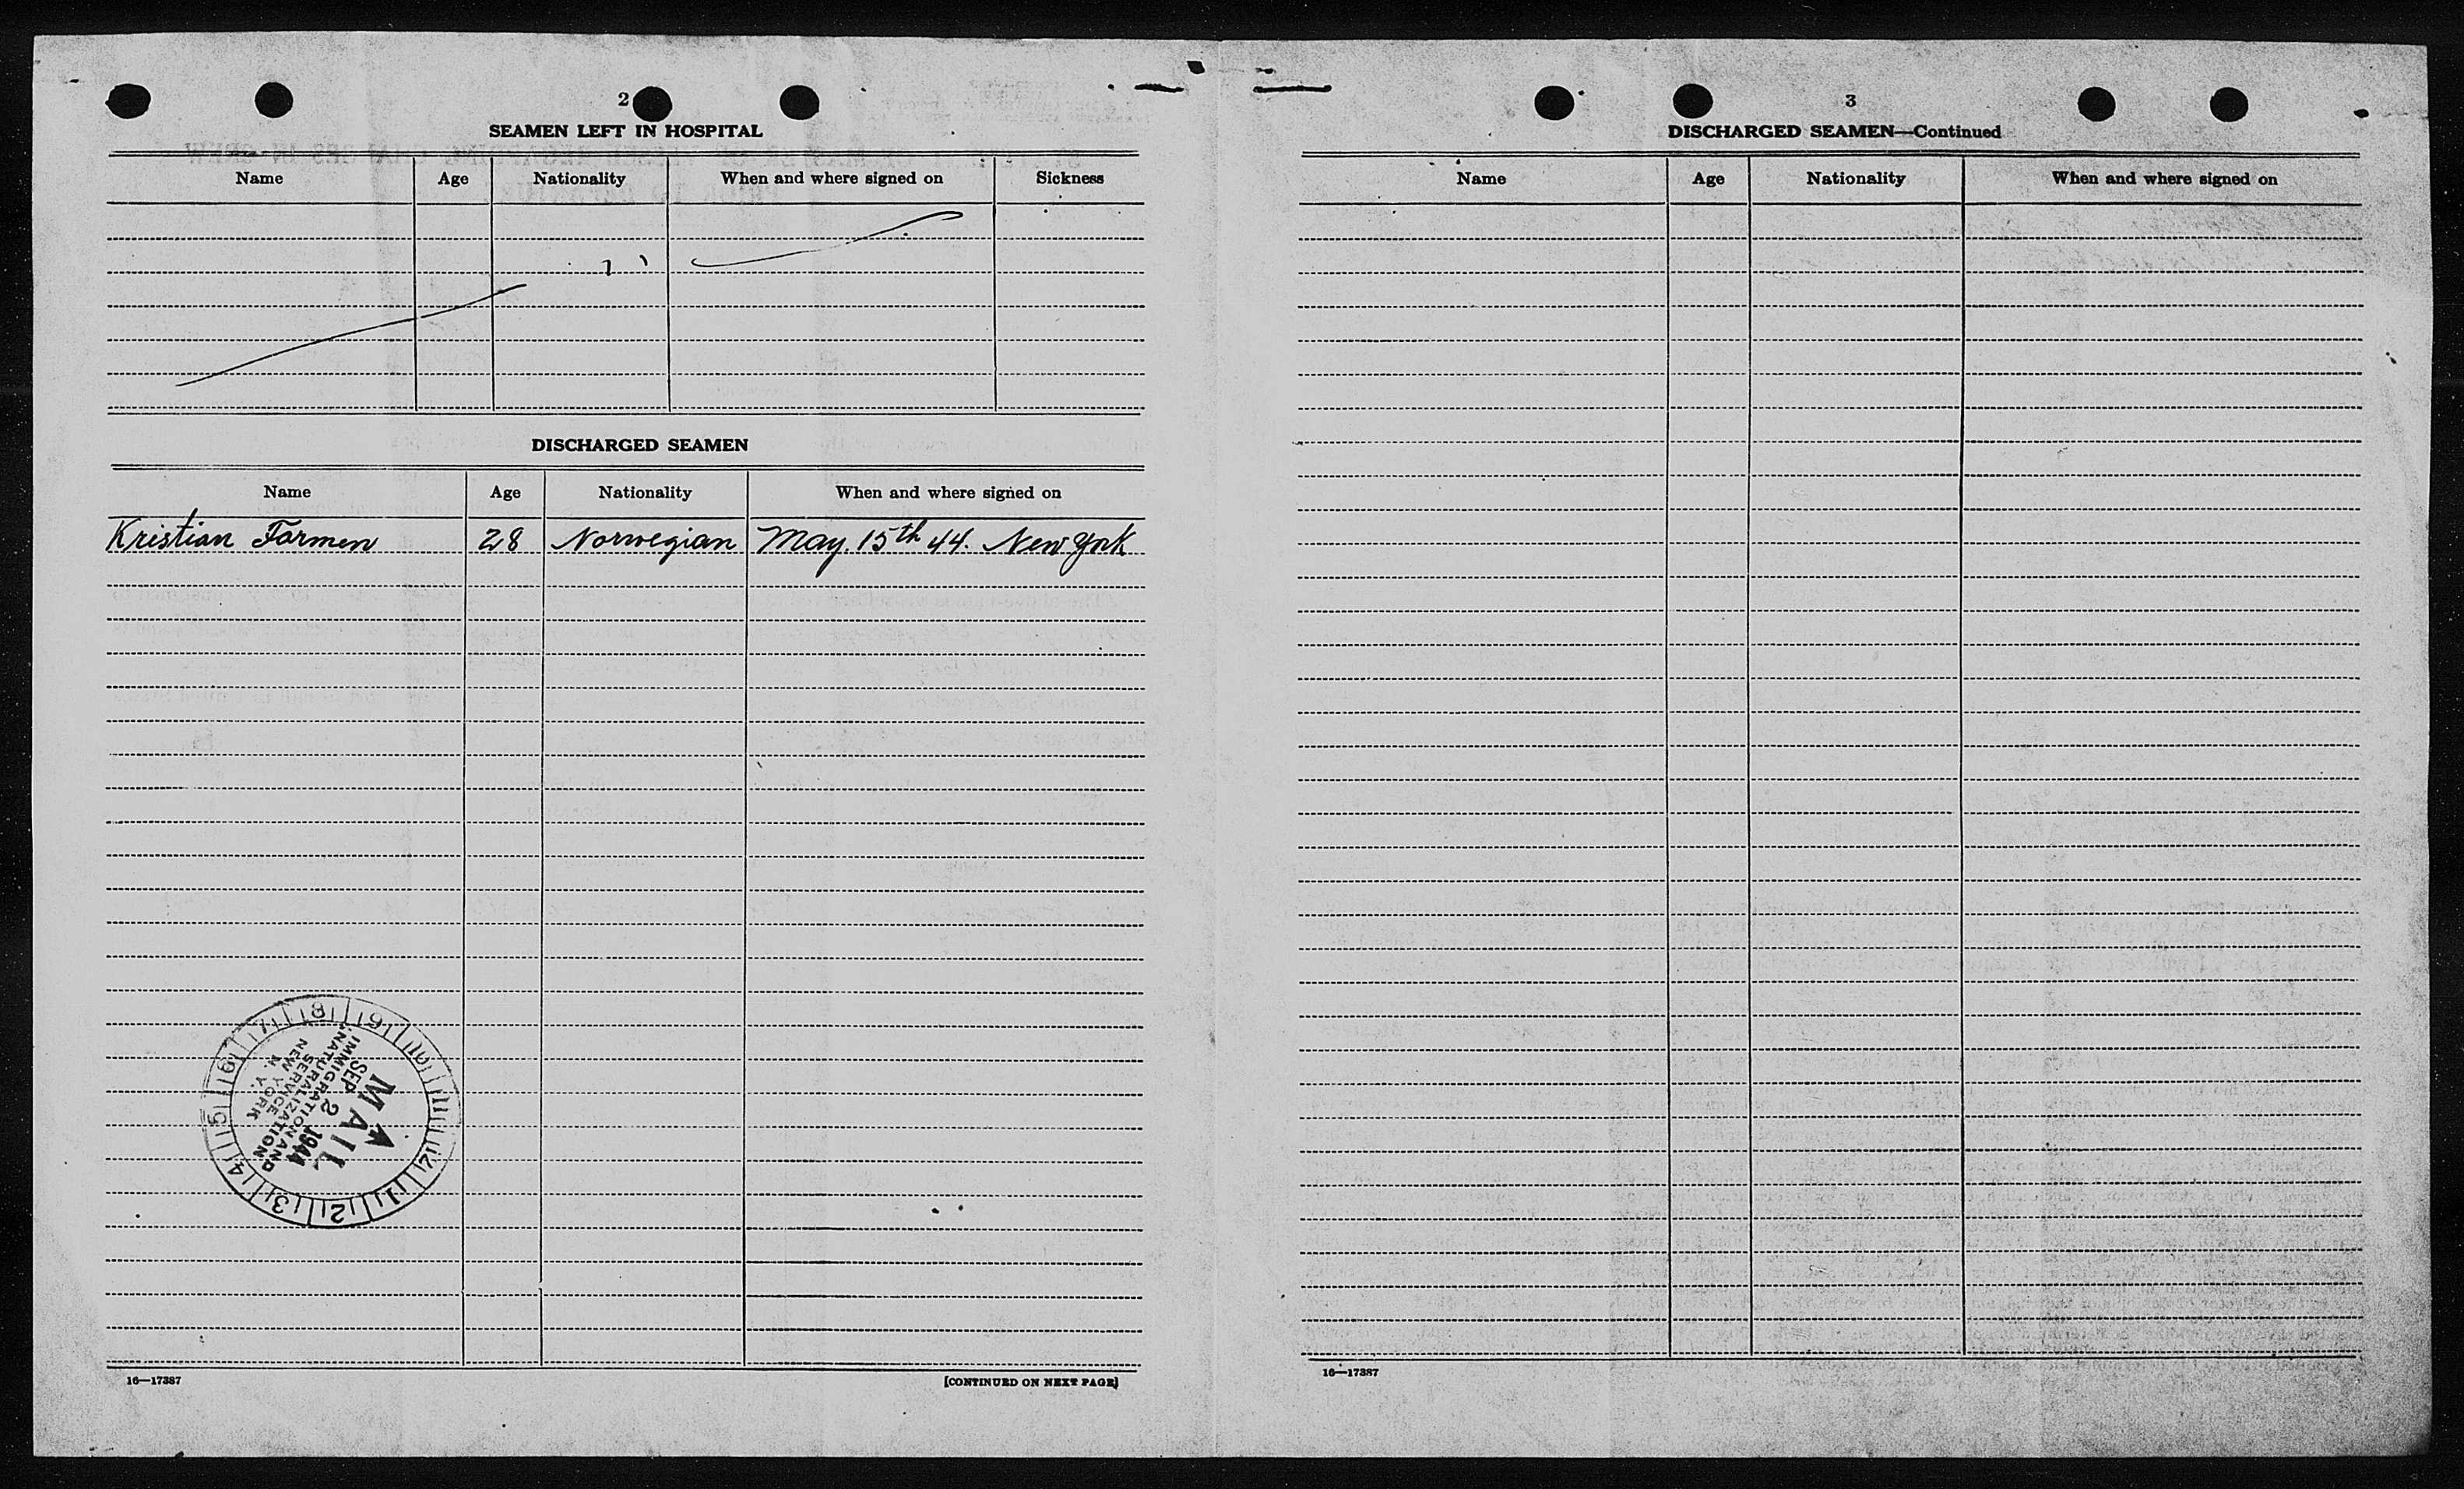 2
SEAMEN LEFT IN HOSPITAL
Name Age Nationality When and where signed on Sickness
DISCHARGED SEAMEN
Name Age Nationality When and where signed on
Kristian Formen 28 Norwegian May. 15th 44. New York
MAIL
SEP 2 1944
IMMIGRATION AND
NATURALIZATION
SERVICE
NEW YORK
N. Y.
7 8 9 10 11 12 1 2 3 4 5 6
16—17387
[CONTINUED ON NEXT PAGE]
3
DISCHARGED SEAMEN—Continued
Name Age Nationality When and where signed on
16—17387